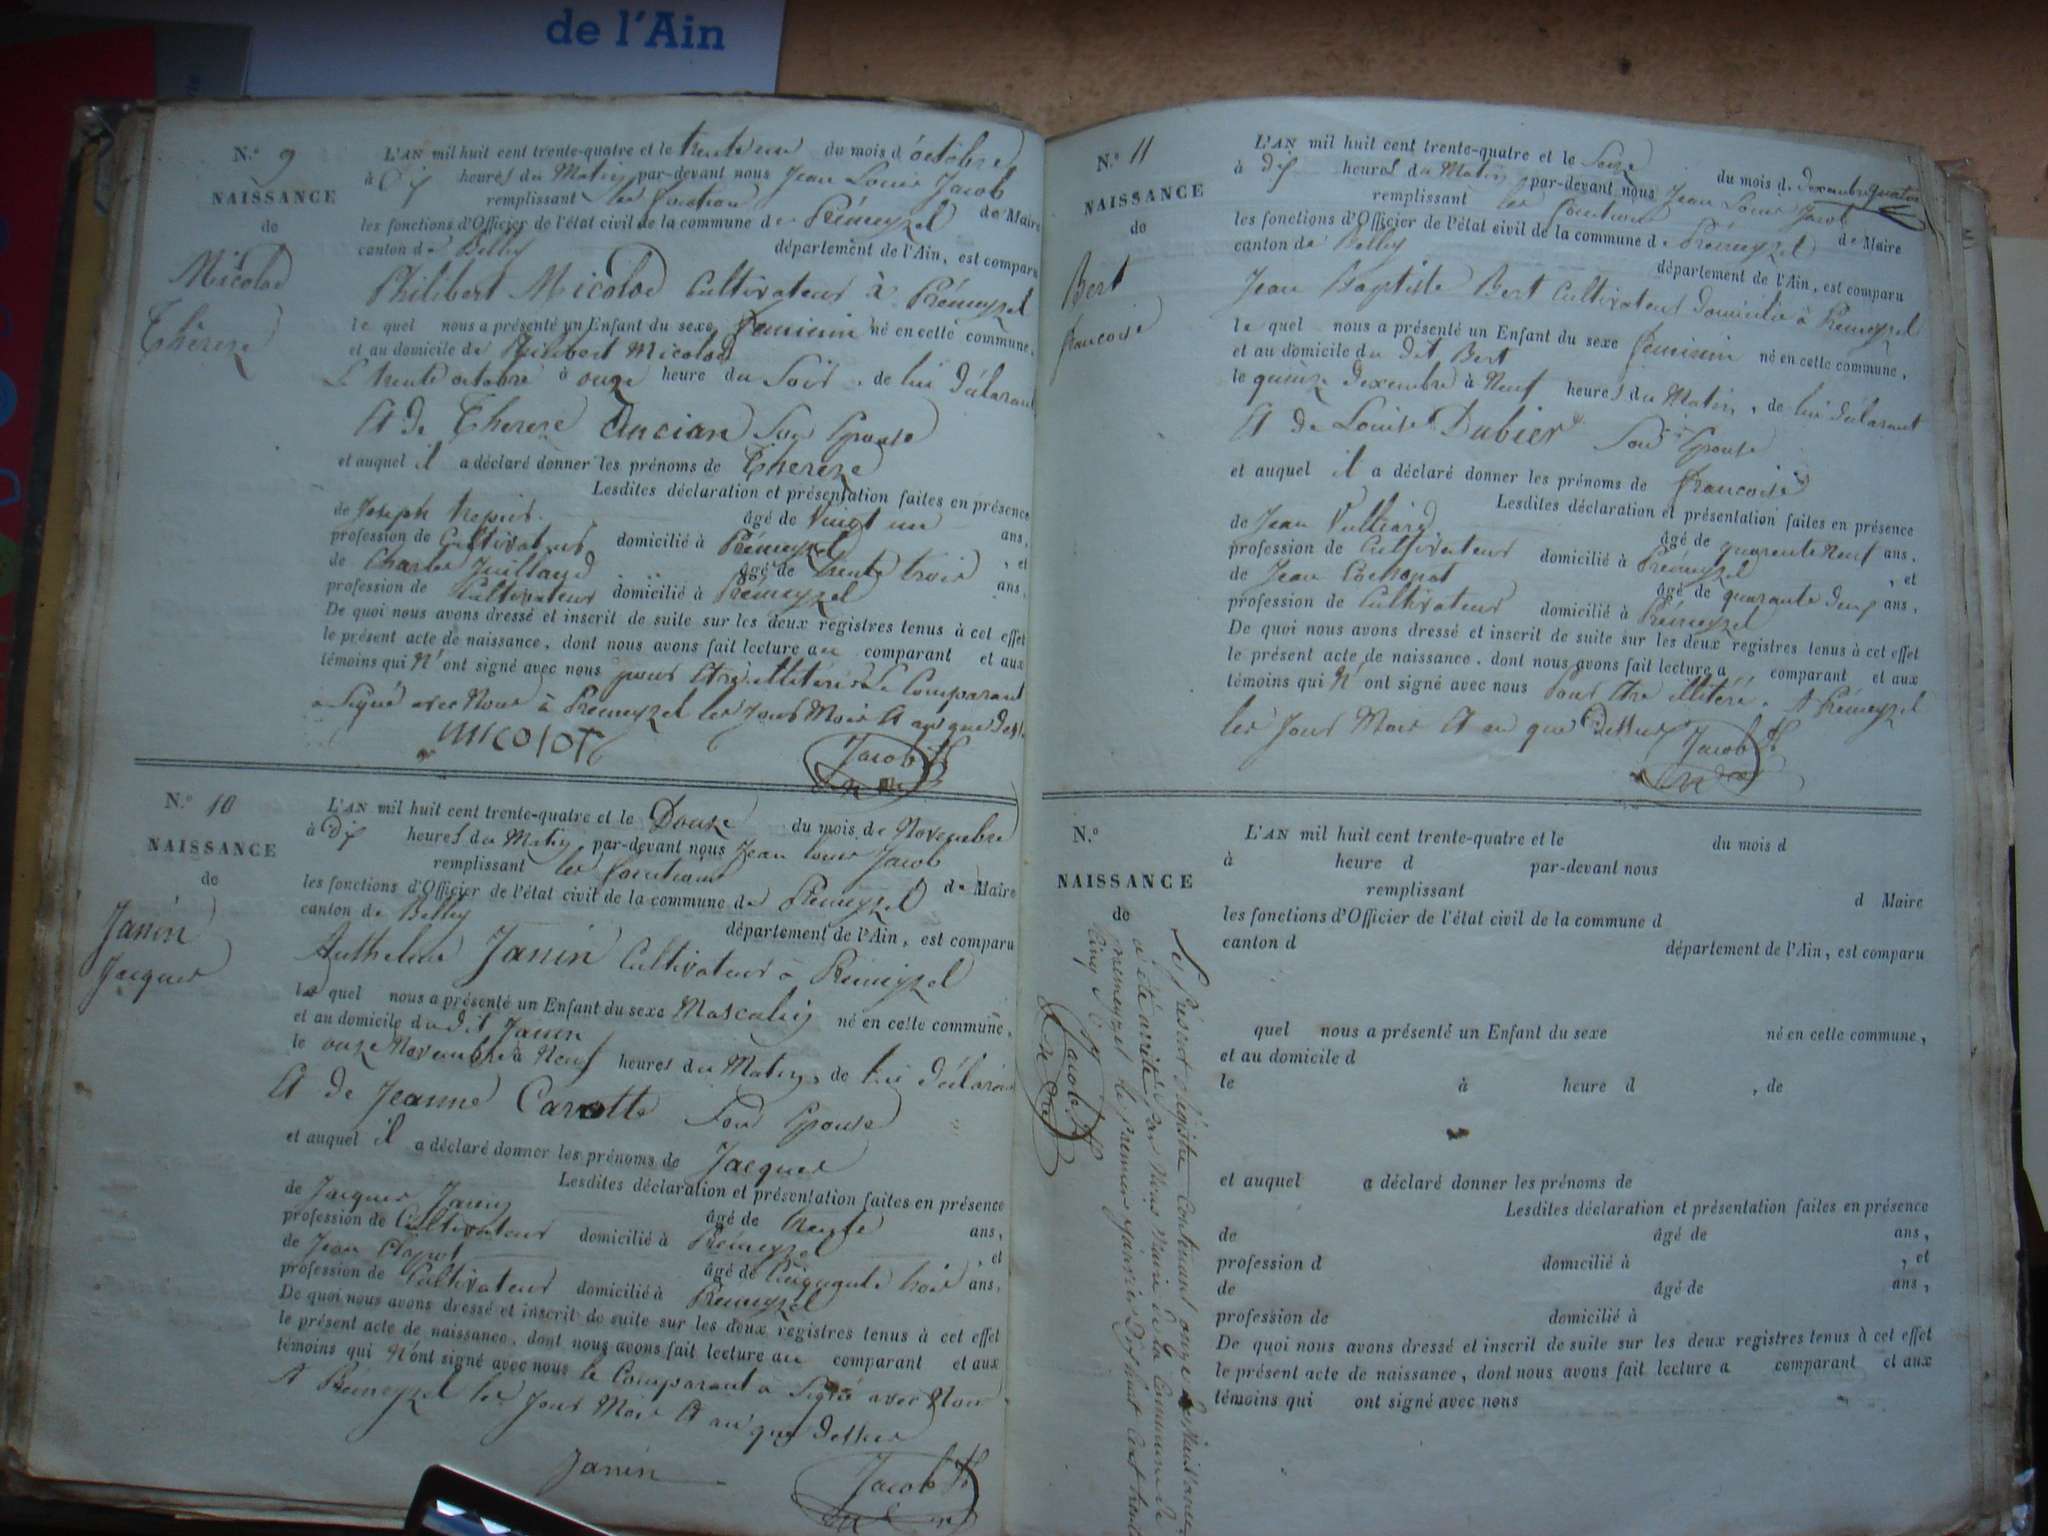 de l'Ain
N.º 9
NAISSANCE
de
Micolod
Thérèze
L'AN mil huit cent trente-quatre et le trente un du mois d'octobre
à dix heures du Matin par-devant nous Jean Louis Jacob
remplissant les fonctions de Maire
les fonctions d'Officier de l'état civil de la commune de Prémeyzel
canton de Belley département de l'Ain, est comparu
Philibert Micolod Cultivateur à Prémeyzel
le quel nous a présenté un Enfant du sexe feminin né en cette commune,
et au domicile de Philibert Micolod
Le trente octobre à onze heure du Soir, de lui déclarant
Et de Thereze Ancian Son Epouse
et auquel il a déclaré donner les prénoms de Thereze
Lesdites déclaration et présentation faites en présence
de Joseph âgé de vingt un ans,
profession de Cultivateur domicilié à Prémeyzel, et
de Charles Juilland âgé de trente trois ans,
profession de Cultivateur domicilié à Prémeyzel
De quoi nous avons dressé et inscrit de suite sur les deux registres tenus à cet effet
le présent acte de naissance, dont nous avons fait lecture au comparant et aux
témoins qui n'ont signé avec nous pour être illitérés Le Comparant
a Signé avec Nous à Prémeyzel les Jour Mois Et an que dessus
micolot
Jacob
N.º 10
NAISSANCE
de
Janin
Jacques
L'AN mil huit cent trente-quatre et le Douze du mois de Novembre
à dix heures du Matin par-devant nous Jean Louis Jacob
remplissant les fonctions de Maire
les fonctions d'Officier de l'état civil de la commune de Prémeyzel
canton de Belley département de l'Ain, est comparu
Anthelme Janin Cultivateur à Prémeyzel
le quel nous a présenté un Enfant du sexe Masculin né en cette commune,
et au domicile du dit Janin
le onze Novembre à Neuf heures du Matin, de lui déclarant
Et de Jeanne Carotte Son Epouse
et auquel il a déclaré donner les prénoms de Jacques
Lesdites déclaration et présentation faites en présence
de Jacques Janin âgé de trente ans,
profession de Cultivateur domicilié à Prémeyzel, et
de Jean Clapot âgé de Cinquante trois ans,
profession de Cultivateur domicilié à Prémeyzel
De quoi nous avons dressé et inscrit de suite sur les deux registres tenus à cet effet
le présent acte de naissance, dont nous avons fait lecture au comparant et aux
témoins qui n'ont signé avec nous le Comparant a Signé avec Nous
A Prémeyzel les Jour Mois Et an que dessus
Janin
Jacob
N.º 11
NAISSANCE
de
Bert
francoise
L'AN mil huit cent trente-quatre et le Seize du mois de dexembre
à dix heures du Matin par-devant nous Jean Louis Jacob
remplissant les fonctions de Maire
les fonctions d'Officier de l'état civil de la commune de Prémeyzel
canton de Belley département de l'Ain, est comparu
Jean Baptiste Bert Cultivateur domicilié à Prémeyzel
le quel nous a présenté un Enfant du sexe feminin né en cette commune,
et au domicile du dit Bert
le quinze dexembre à Neuf heures du Matin, de lui déclarant
Et de Louise Dubier Son Epouse
et auquel il a déclaré donner les prénoms de francoise
Lesdites déclaration et présentation faites en présence
de Jean Vulliard âgé de quarante neuf ans,
profession de Cultivateur domicilié à Prémeyzel, et
de Jean Cochonat âgé de quarante deux ans,
profession de Cultivateur domicilié à Prémeyzel
De quoi nous avons dressé et inscrit de suite sur les deux registres tenus à cet effet
le présent acte de naissance, dont nous avons fait lecture a comparant et aux
témoins qui n'ont signé avec nous Pour être illitéré. A Prémeyzel
les Jour Mois Et an que Dessus
Jacob
N.º
NAISSANCE
de
L'AN mil huit cent trente-quatre et le du mois d
à heure d par-devant nous
remplissant d Maire
les fonctions d'Officier de l'état civil de la commune d
canton d département de l'Ain, est comparu
quel nous a présenté un Enfant du sexe né en cette commune,
et au domicile d
le à heure d , de
et auquel a déclaré donner les prénoms de
Lesdites déclaration et présentation faites en présence
de âgé de ans,
profession d domicilié à , et
de âgé de ans,
profession de domicilié à
De quoi nous avons dressé et inscrit de suite sur les deux registres tenus à cet effet
le présent acte de naissance, dont nous avons fait lecture a comparant et aux
témoins qui ont signé avec nous
Le Présent Régistre Contenant onze Naissance
a été arrêté par Nous Maire de la Commune de
premeyzel le premier Janvier Dix huit Cent trente
Cinq
Jacob